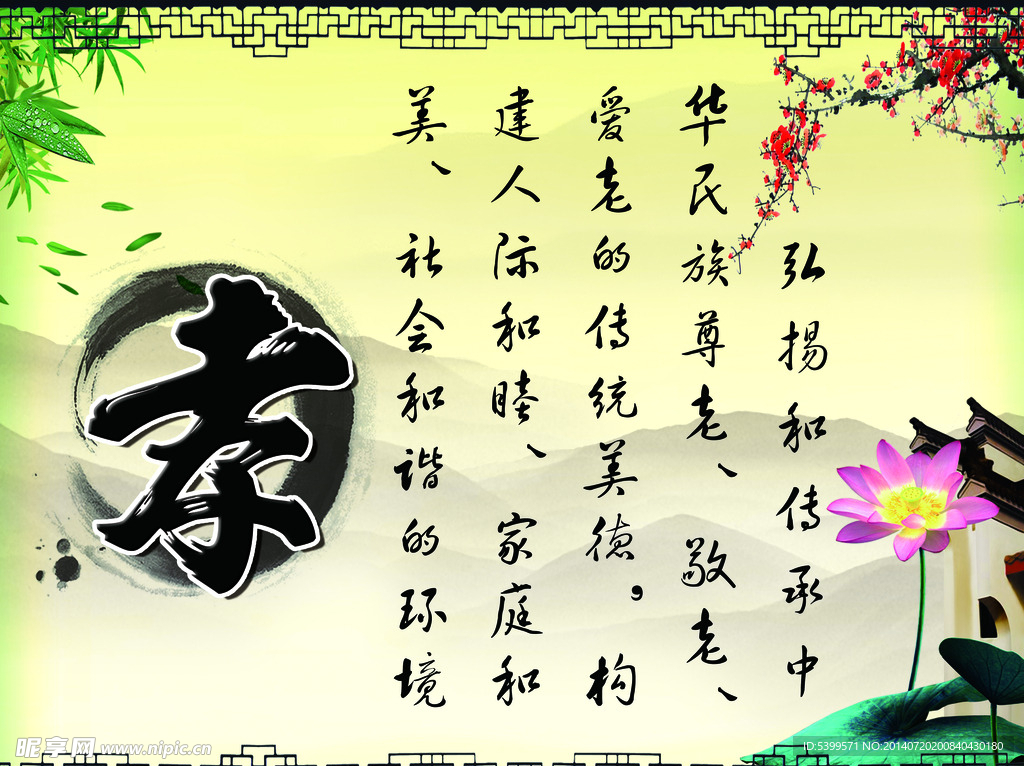 弘扬和传承中
华民族尊老、敬老、
爱老的传统美德。构
建人际和睦、家庭和
美、社会和谐的环境
孝
昵享网 www.nipic.cn
ID:5399571 NO:20140720200840430180